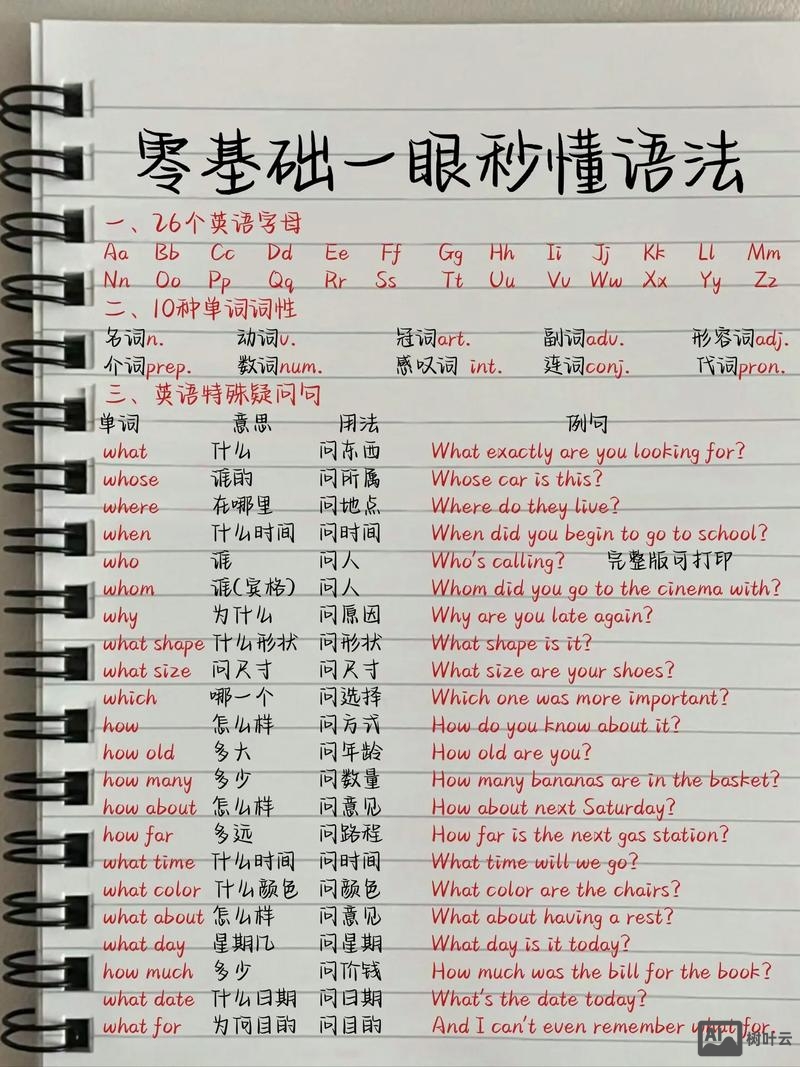 零基础一眼秒懂语法
一、26个英语字母
Aa Bb Cc Dd Ee Ff Gg Hh Ii Jj Kk Ll Mm
Nn Oo Pp Qq Rr Ss Tt Uu Vv Ww Xx Yy Zz
二、10种单词词性
名词n. 动词v. 冠词art. 副词adv. 形容词adj.
介词prep. 数词num. 感叹词 int. 连词conj. 代词pron.
三、英语特殊疑问句
单词 意思 用法 例句
what 什么 问东西 What exactly are you looking for?
whose 谁的 问所属 Whose car is this?
where 在哪里 问地点 Where do they live?
when 什么时间 问时间 When did you begin to go to school?
who 谁 问人 Who's calling? 完整版可打印
whom 谁(宾格) 问人 Whom did you go to the cinema with?
why 为什么 问原因 Why are you late again?
what shape 什么形状 问形状 What shape is it?
what size 问尺寸 问尺寸 What size are your shoes?
which 哪一个 问选择 Which one was more important?
how 怎么样 问方式 How do you know about it?
how old 多大 问年龄 How old are you?
how many 多少 问数量 How many bananas are in the basket?
how about 怎么样 问意见 How about next Saturday?
how far 多远 问路程 How far is the next gas station?
what time 什么时间 问时间 What time will we go?
what color 什么颜色 问颜色 What color are the chairs?
what about 怎么样 问意见 What about having a rest?
what day 星期几 问星期 What day is it today?
how much 多少 问价钱 How much was the bill for the book?
what date 什么日期 问日期 What's the date today?
what for 为何目的 问目的 And I can't even remember what for.
树叶云